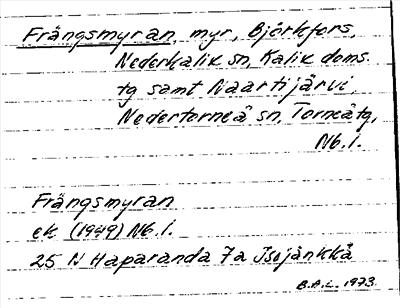 Frängsmyran, myr, Björkfors,
Nederkalix sn, Kalix doms.
tg samt Naartijärvi,
Nedertorneå sn, Torneå tg,
Nb.l.
Frängsmyran
ek (1949) Nb.l.
25 N Haparanda 7a Isojänkkä
B.A.L. 1973